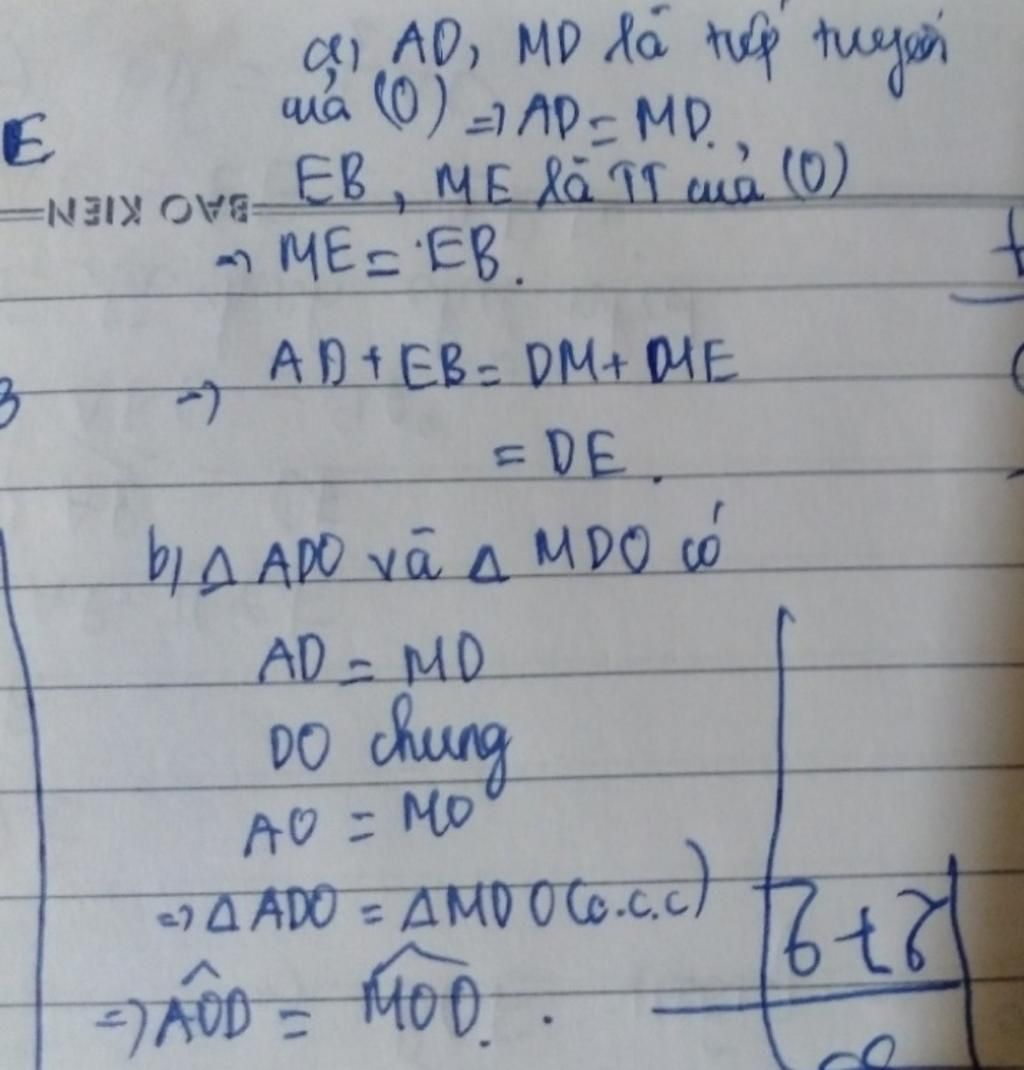 a) AD, MD là tiếp tuyến
của (O) => AD = MD.
E
EB, ME là TT của (O)
BAO KIEN
=> ME = EB.
=> AD + EB = DM + ME
= DE.
b) Δ ADO và Δ MDO có
AD = MD
DO chung
AO = MO
=> Δ ADO = Δ MDO (c.c.c)
=> AOD = MOD.